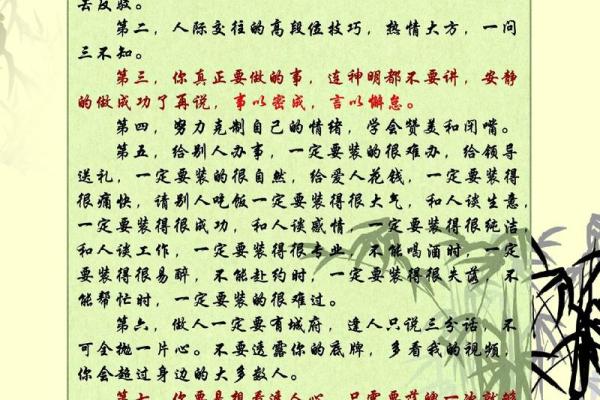 去反驳。
第二，人际交往的高段位技巧，热情大方，一问
三不知。
第三，你真正要做的事，连神明都不要讲，安静
的做成功了再说，事以密成，言以懈怠。
第四，努力克制自己的情绪，学会赞美和闭嘴。
第五，给别人办事，一定要装的很难办，给领导
送礼，一定要装的很自然，给爱人花钱，一定要装得
很痛快，请别人吃饭一定要装得很大气，和人谈生意，
一定要装得很成功，和人谈感情，一定要装得很纯洁，
和人谈工作，一定要装得很专业，不能喝酒时，一定
要装得很易醉，不能赴约时，一定要装得很失落，不
能帮忙时，一定要装的很难过。
第六，做人一定要有城府，逢人只说三分话，不
可全抛一片心。不要透露你的底牌，多看我的视频，
你会超过身边的大多数人。
第七，你要是想看透人心，只需要落魄一次就够